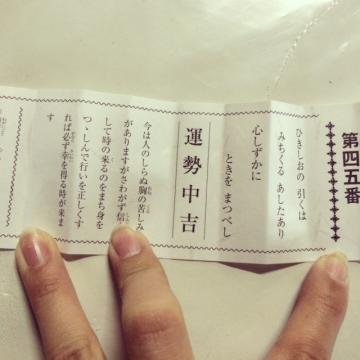 第四五番
ひきしおの 引くは
みちくる あしたあり
心しずかに
ときを まつべし
運勢中吉
今は人のしらぬ胸の苦しみ
がありますがさわがず信心
して時の来るのをまち身を
つゝしんで行いを正しくす
れば必ず幸を得る時が来ま
す